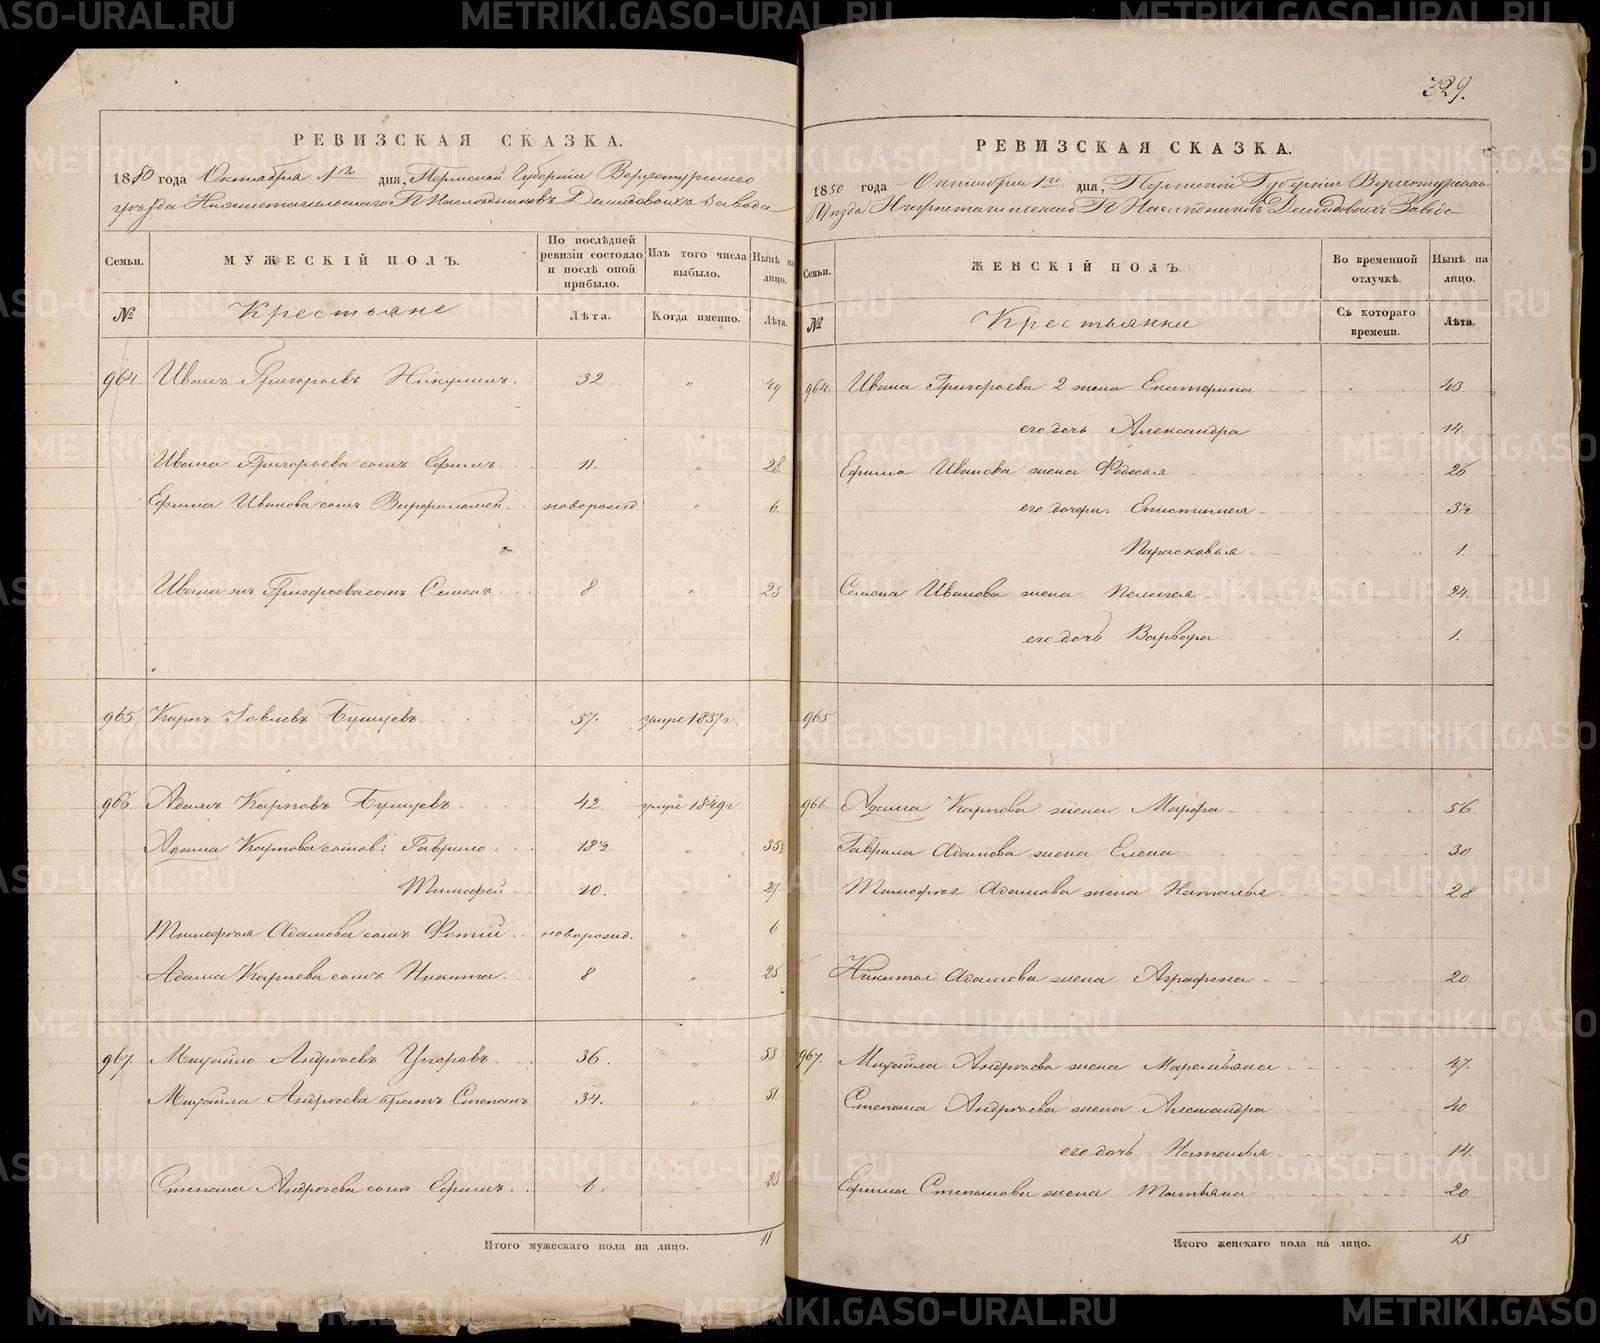 329.
РЕВИЗСКАЯ СКАЗКА.
1850 года Октября 1го дня, Пермской Губернiи Верхотурскаго
уѣзда Нижнетагильскаго Гг. Наслѣдниковъ Демидовыхъ завода
Семьи.
МУЖЕСКIЙ ПОЛЪ.
По послѣдней ревизiи состояло и послѣ оной прибыло.
Изъ того числа выбыло.
Нынѣ на лицо.
№
Крестьяне
Лѣта.
Когда именно.
Лѣта.
964. Иванъ Григорьевъ Никулинъ. 32 " 49
Ивана Григорьева сынъ Ефимъ. 11. " 28
Ефима Иванова сынъ Варфоломей. новорожд " 6.
Ивана Григорьева сынъ 8 " 25
965 Карпъ Бушуевъ. 37. умре 1837 г.
966. Адамъ Карповъ Бушуевъ 42. умре 1849 г
Адама Карпова сыновья: Гаврило 18½ " 35½
Тимофей 10. " 27
Тимофея Адамова сынъ Фотiй новорожд. " 6
Адама Карпова сынъ Никита 8 " 25
967. Михайло Андреевъ 36. " 53
Михайла Андреева братъ Степанъ 34. " 51
Степана Андреева сынъ Ефимъ. 6. " 23
Итого мужескаго пола на лицо. 11
РЕВИЗСКАЯ СКАЗКА.
1850 года Октября 1го дня, Пермской Губернiи Верхотурскаго
Уѣзда Нижнетагильскаго Гг. Наслѣдниковъ Демидовыхъ Завода
Семьи.
ЖЕНСКIЙ ПОЛЪ.
Во временной отлучкѣ.
Нынѣ на лицо.
№
Крестьянки
Съ котораго времени.
Лѣта.
964. Ивана Григорьева 2 жена Екатерина 43.
его дочь Александра 14.
Ефима Иванова жена Федосья 26
его дочери: Епистимея 3½
Парасковья 1.
Семена Иванова жена Пелагея 24.
его дочь Варвара 1.
965
966. Адама Карпова жена Марфа 56
Гаврила Адамова жена Елена 30
Тимофея Адамова жена Наталья 28
Никиты Адамова жена Аграфена 20
967. Михайла Андреева жена Маремьяна 47.
Степана Андреева жена Александра 40
его дочь Наталья 14.
Ефима Степанова жена Татьяна 20
Итого женскаго пола на лицо. 15
METRIKI.GASO-URAL.RU